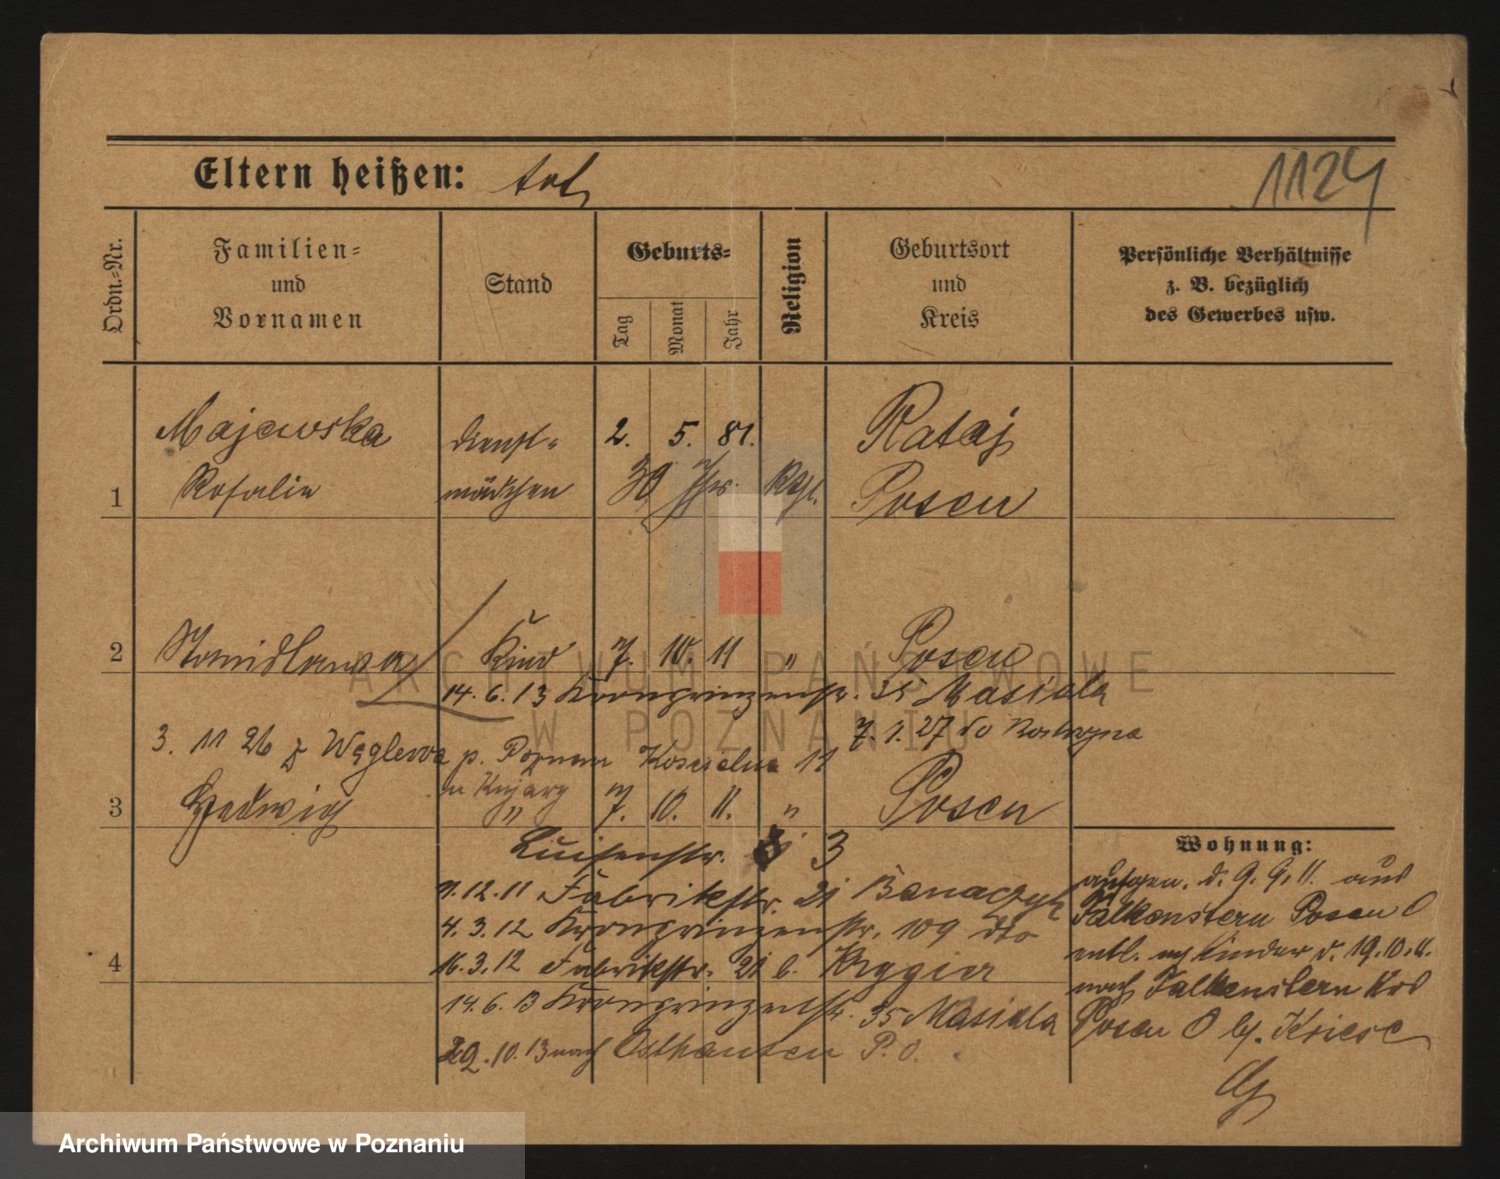 Eltern heißen: tot
1124
Ordn.-Nr.
Familien-
und
Vornamen
Stand
Geburts-
Tag
Monat
Jahr
Religion
Geburtsort
und
Kreis
Persönliche Verhältnisse
z. B. bezüglich
des Gewerbes usw.
Majewska Dienst- 2. 5. 81. Rataj
1 Rosalie mädchen 30 Kthl. Posen
2 Stanislawa Kind 7. 10. 11 " Posen
14. 6. 13 Kronprinzenstr. 35 Masiala
7. 1. 27 do
3. 11 26 z Węglewa p. Poznań Kościelna 11
w Kujary
3 Hedwig " 7. 10. 11. " Posen
Luisenstr. 3
9. 12. 11 Fabrikstr. 21 Banaczyk
4. 3. 12 Kronprinzenstr. 109 dto
4 16. 3. 12 Fabrikstr. 21 b.
14. 6. 13 Kronprinzenstr. 35 Masiala
29. 10. 13 nach Osthausen P. O.
Wohnung:
aufgen. d. 9. 9. 11. aus
Falkenstern Posen O
entl. m. Kinder d. 19. 10. 11.
nach Falkenstern Krs
Posen O b.
ARCHIWUM PAŃSTWOWE
W POZNANIU
Archiwum Państwowe w Poznaniu